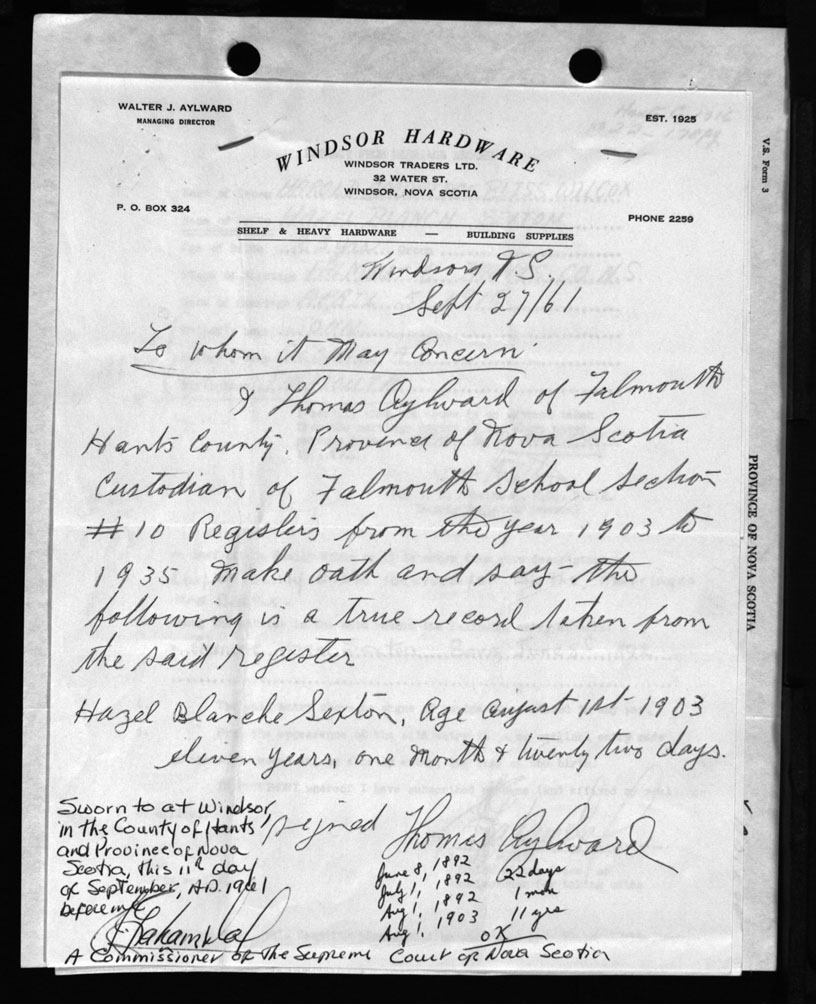 WALTER J. AYLWARD
MANAGING DIRECTOR
EST. 1925
WINDSOR HARDWARE
WINDSOR TRADERS LTD.
32 WATER ST.
WINDSOR, NOVA SCOTIA
P. O. BOX 324
PHONE 2259
SHELF & HEAVY HARDWARE — BUILDING SUPPLIES
V.S. Form 3
PROVINCE OF NOVA SCOTIA
Windsor N.S.
Sept 27/61
To whom it May Concern.
I Thomas Aylward of Falmouth
Hants County, Province of Nova Scotia
Custodian of Falmouth School Section
#10 Registers from the year 1903 to
1935 Make oath and say - the
following is a true record taken from
the said register
Hazel Blanche Sexton, Age August 1st 1903
eleven years, one Month & twenty two days.
signed Thomas Aylward
Sworn to at Windsor,
in the County of Hants
and Province of Nova
Scotia, this 11th day
of September, A.D. 1961
before me
June 8, 1892
July 1, 1892 22 days
Aug 1, 1892 1 mon
Aug 1, 1903 11 yrs
OK
A Commissioner of the Supreme Court of Nova Scotia